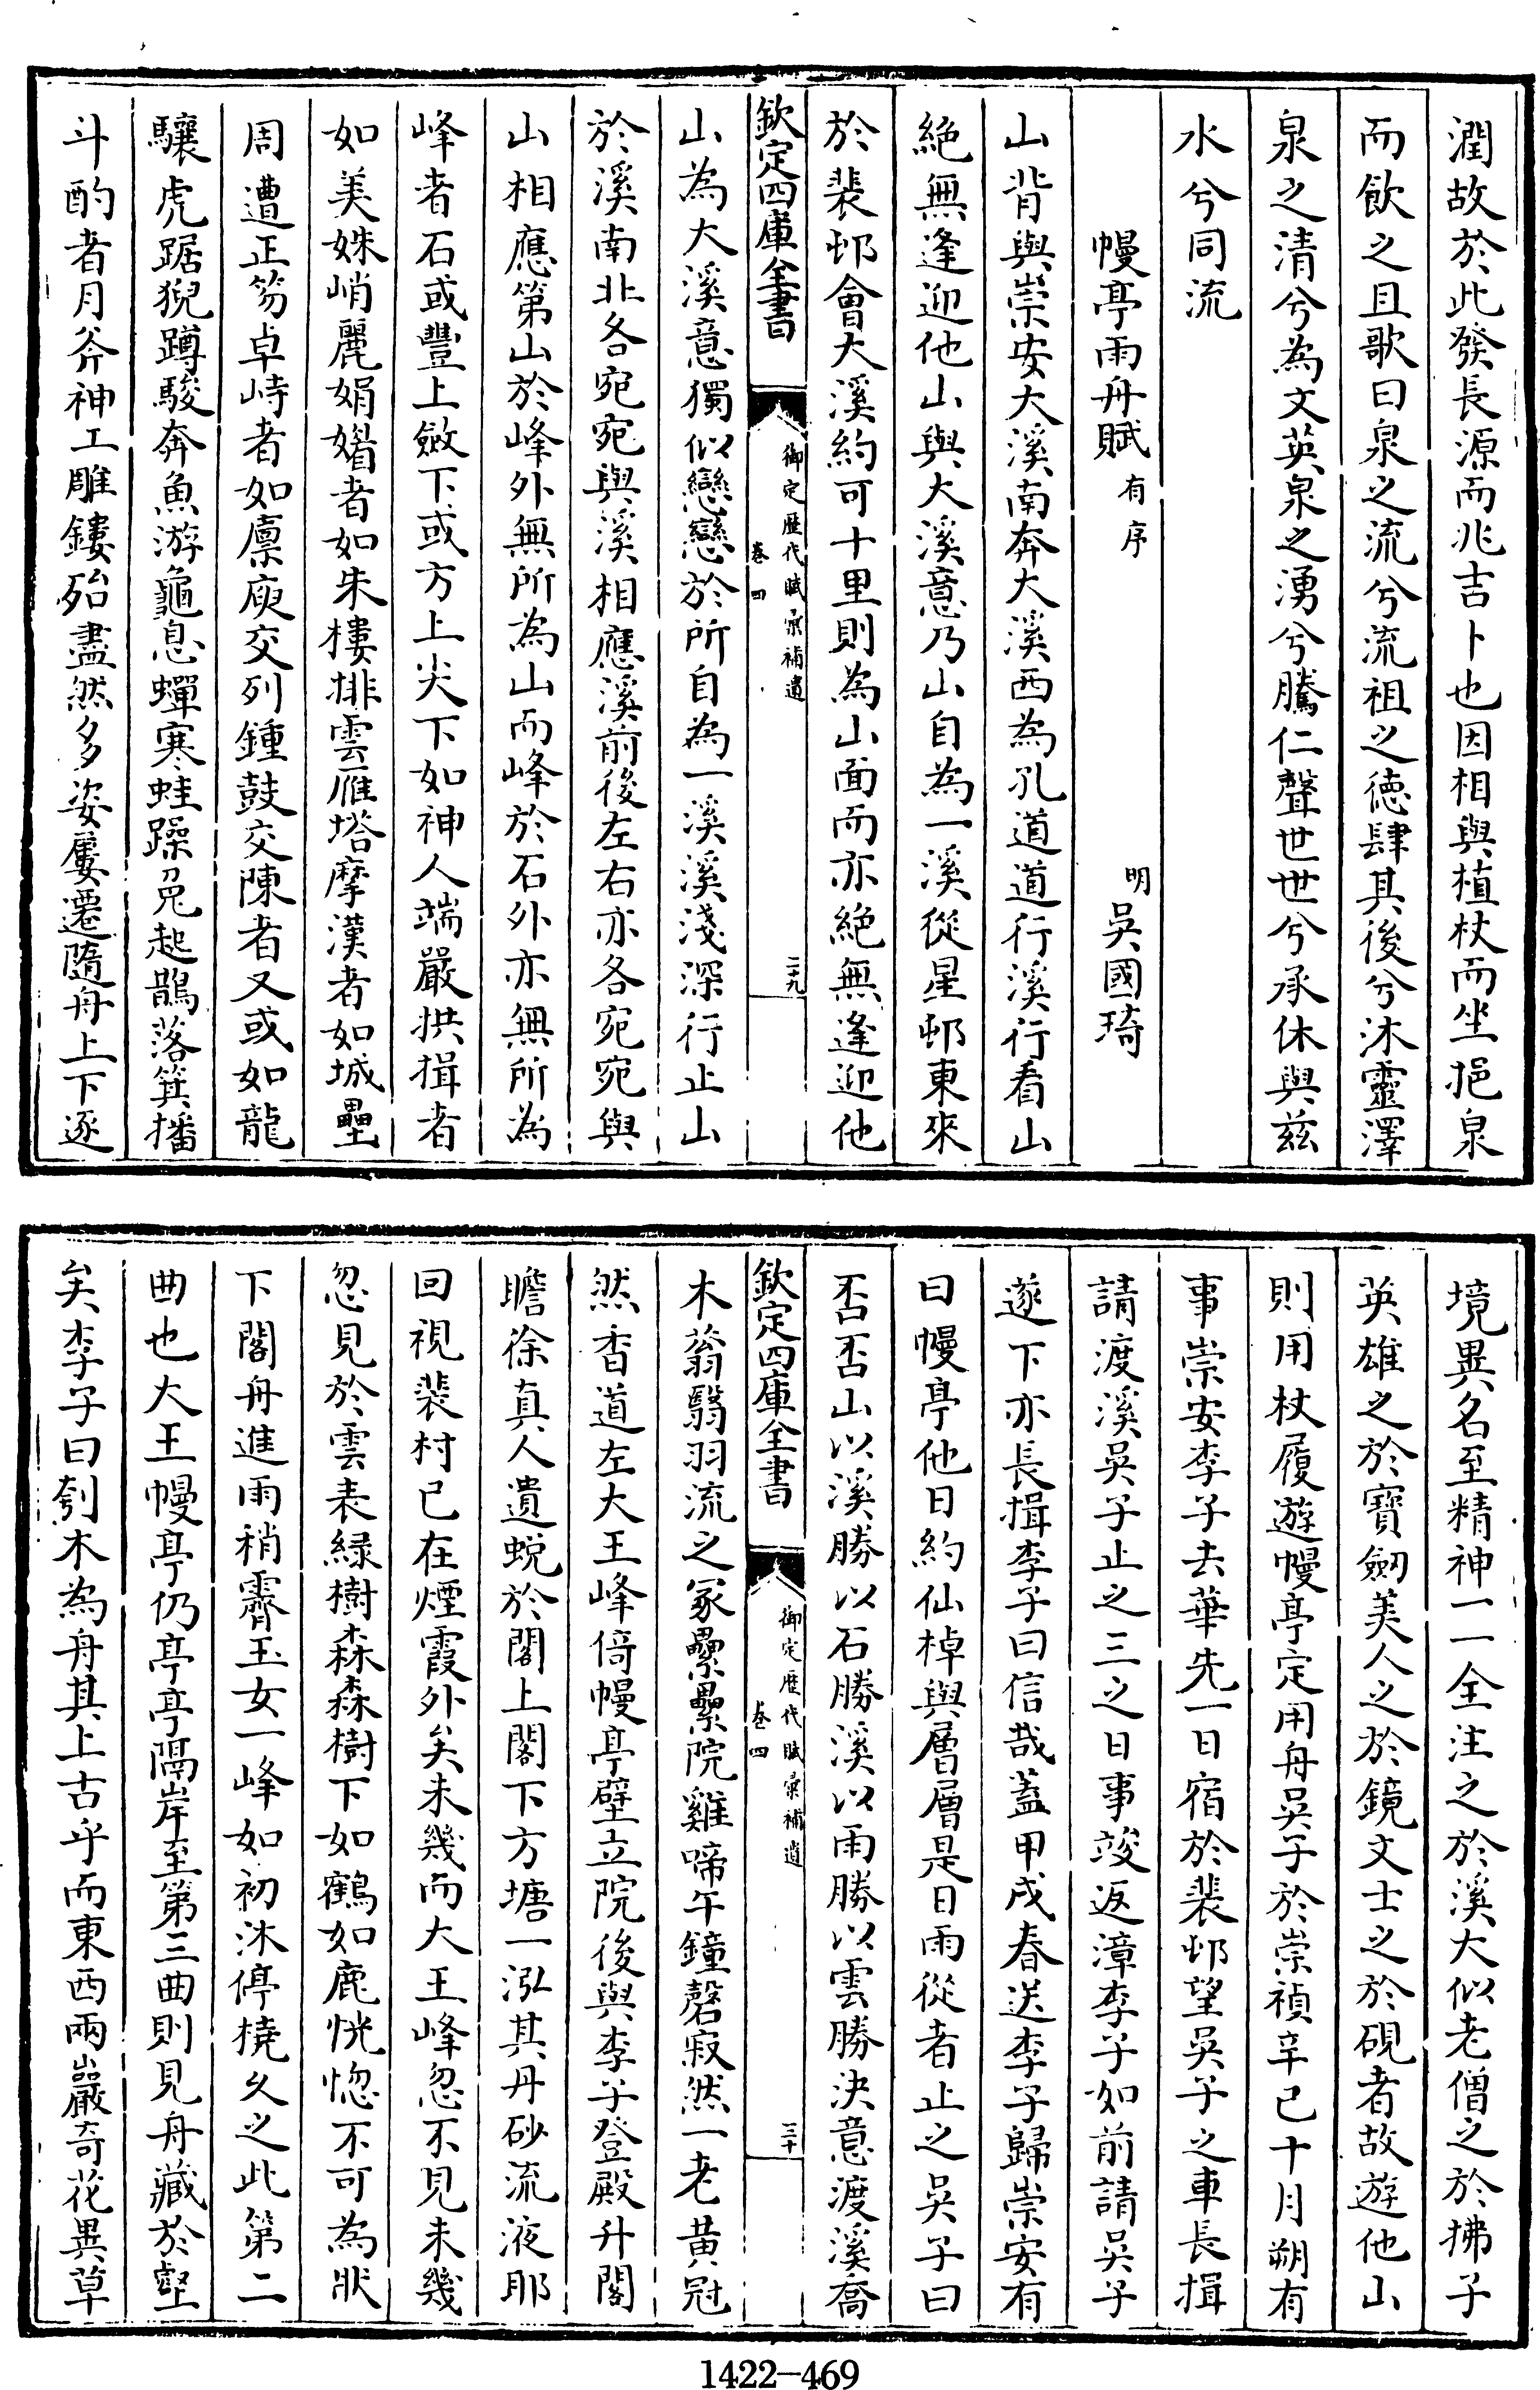 潤故於此發長源而兆吉卜也因相與植杖而坐挹泉
而飲之且歌曰泉之流兮流祖之德肆其後兮沐靈澤
泉之清兮為文英泉之湧兮騰仁聲世世兮承休與兹
水兮同流
幔亭雨舟賦 有序 明 吳國琦
山背與崇安大溪南奔大溪西為孔道道行溪行看山
絶無逢迎他山與大溪意乃山自為一溪從星邨東來
於裴邨會大溪約可十里則為山面而亦絶無逢迎他
欽定四庫全書
御定歷代賦彙補遺
卷四
二十九
山為大溪意獨似戀戀於所自為一溪溪淺深行止山
於溪南北各宛宛與溪相應溪前後左右亦各宛宛與
山相應第山於峰外無所為山而峰於石外亦無所為
峰者石或豐上斂下或方上尖下如神人端嚴拱揖者
如美姝峭麗娟媚者如朱樓排雲雁塔摩漢者如城壘
周遭正笏卓峙者如廪庾交列鍾鼓交陳者又或如龍
驤虎踞猊蹲駿奔魚游龜息蟬寒蛙躁兎起鶻落箕播
斗酌者月斧神工雕鏤殆盡然多姿屢遷隨舟上下逐
境異名至精神一一全注之於溪大似老僧之於拂子
英雄之於寶劒美人之於鏡文士之於硯者故遊他山
則用杖履遊幔亭定用舟吳子於崇禎辛已十月朔有
事崇安李子去華先一日宿於裴邨望吳子之車長揖
請渡溪吳子止之三之日事竣返漳李子如前請吳子
遂下亦長揖李子曰信哉葢甲戌春送李子歸崇安有
曰幔亭他日約仙棹與層層是日雨從者止之吳子曰
否否山以溪勝以石勝溪以雨勝以雲勝決意渡溪喬
欽定四庫全書
御定歷代賦彙補遺
卷四
三十
木蓊翳羽流之冢纍纍院雞啼午鐘磬寂然一老黄冠
然香道左大王峰倚幔亭壁立院後與李子登殿升閣
瞻徐真人遺蜕於閣上閣下方塘一泓其丹砂流液耶
回視裴村已在煙霞外矣未幾而大王峰忽不見未幾
忽見於雲表緑樹森森樹下如鶴如鹿恍惚不可為狀
下閣舟進雨稍霽玉女一峰如初沐停橈久之此第二
曲也大王幔亭仍亭亭隔岸至第三曲則見舟藏於壑
矣李子曰刳木為舟其上古乎而東西兩巖奇花異草
1422-469